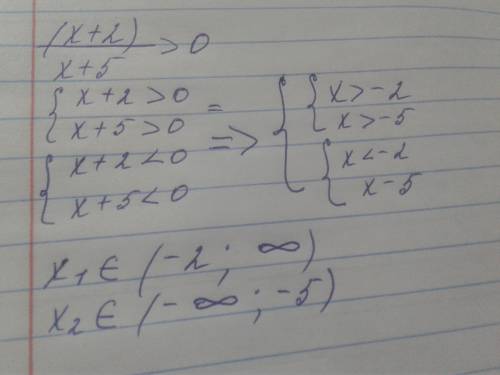 (x+2)/x+5 > 0
{ x+2>0 =
{ x+5>0 =>
{ x+2<0
{ x+5<0
{ { x>-2
{ x>-5
{ x<-2
{ x-5
x₁ ∈ (-2; ∞)
x₂ ∈ (-∞; -5)